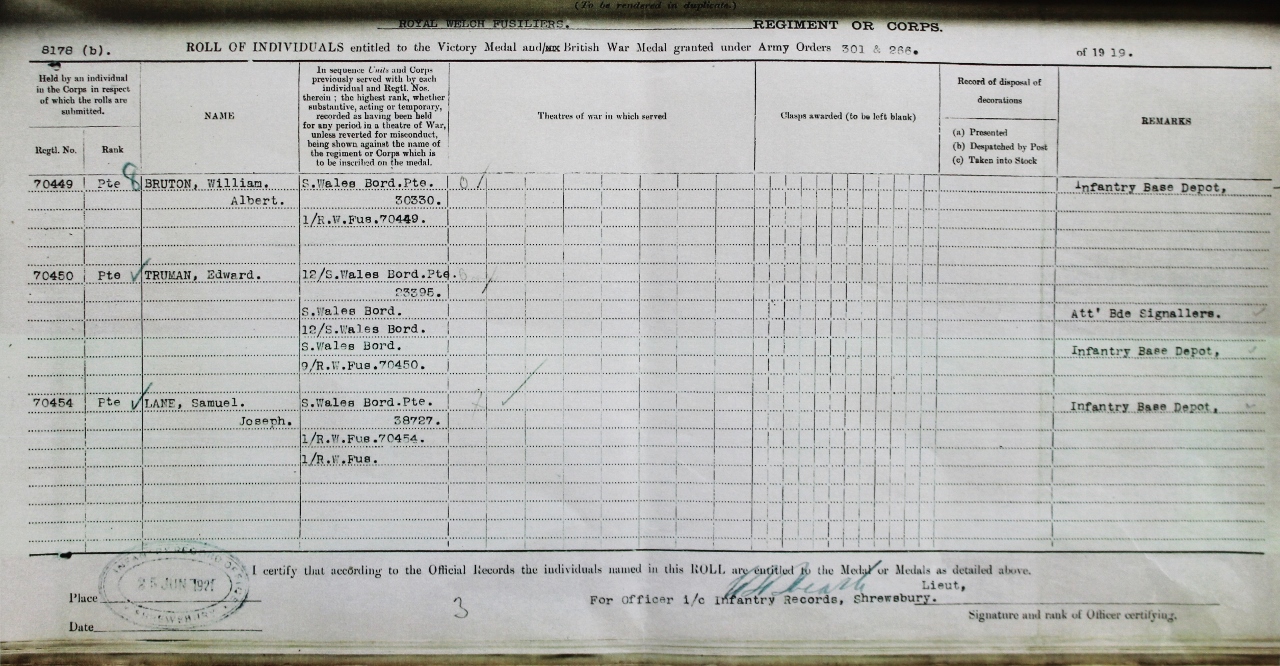 (To be rendered in duplicate.)
ROYAL WELCH FUSILIERS. REGIMENT OR CORPS.
8178 (b). ROLL OF INDIVIDUALS entitled to the Victory Medal and/ British War Medal granted under Army Orders 301 & 266. of 19 19.
Held by an individual
in the Corps in respect
of which the rolls are
submitted.
Regtl. No. Rank
NAME
In sequence Units and Corps
previously served with by each
individual and Regtl. Nos.
therein ; the highest rank, whether
substantive, acting or temporary,
recorded as having been held
for any period in a theatre of War,
unless reverted for misconduct,
being shown against the name of
the regiment or Corps which is
to be inscribed on the medal.
Theatres of war in which served
Clasps awarded (to be left blank)
Record of disposal of
decorations
(a) Presented
(b) Despatched by Post
(c) Taken into Stock
REMARKS
70449 Pte 8 BRUTON, William. S.Wales Bord.Pte. Infantry Base Depot,
Albert. 30330.
1/R.W.Fus.70449.
70450 Pte ✓ TRUMAN, Edward. 12/S.Wales Bord.Pte.
23395.
S.Wales Bord. Att' Bde Signallers.
12/S.Wales Bord.
S.Wales Bord. Infantry Base Depot,
9/R.W.Fus.70450.
70454 Pte ✓ LANE, Samuel. S.Wales Bord.Pte. Infantry Base Depot,
Joseph. 38727.
1/R.W.Fus.70454.
1/R.W.Fus.
I certify that according to the Official Records the individuals named in this ROLL are entitled to the Medal or Medals as detailed above.
25 JUN 1921
Lieut,
Place 3 For Officer i/c Infantry Records, Shrewsbury.
Signature and rank of Officer certifying.
Date